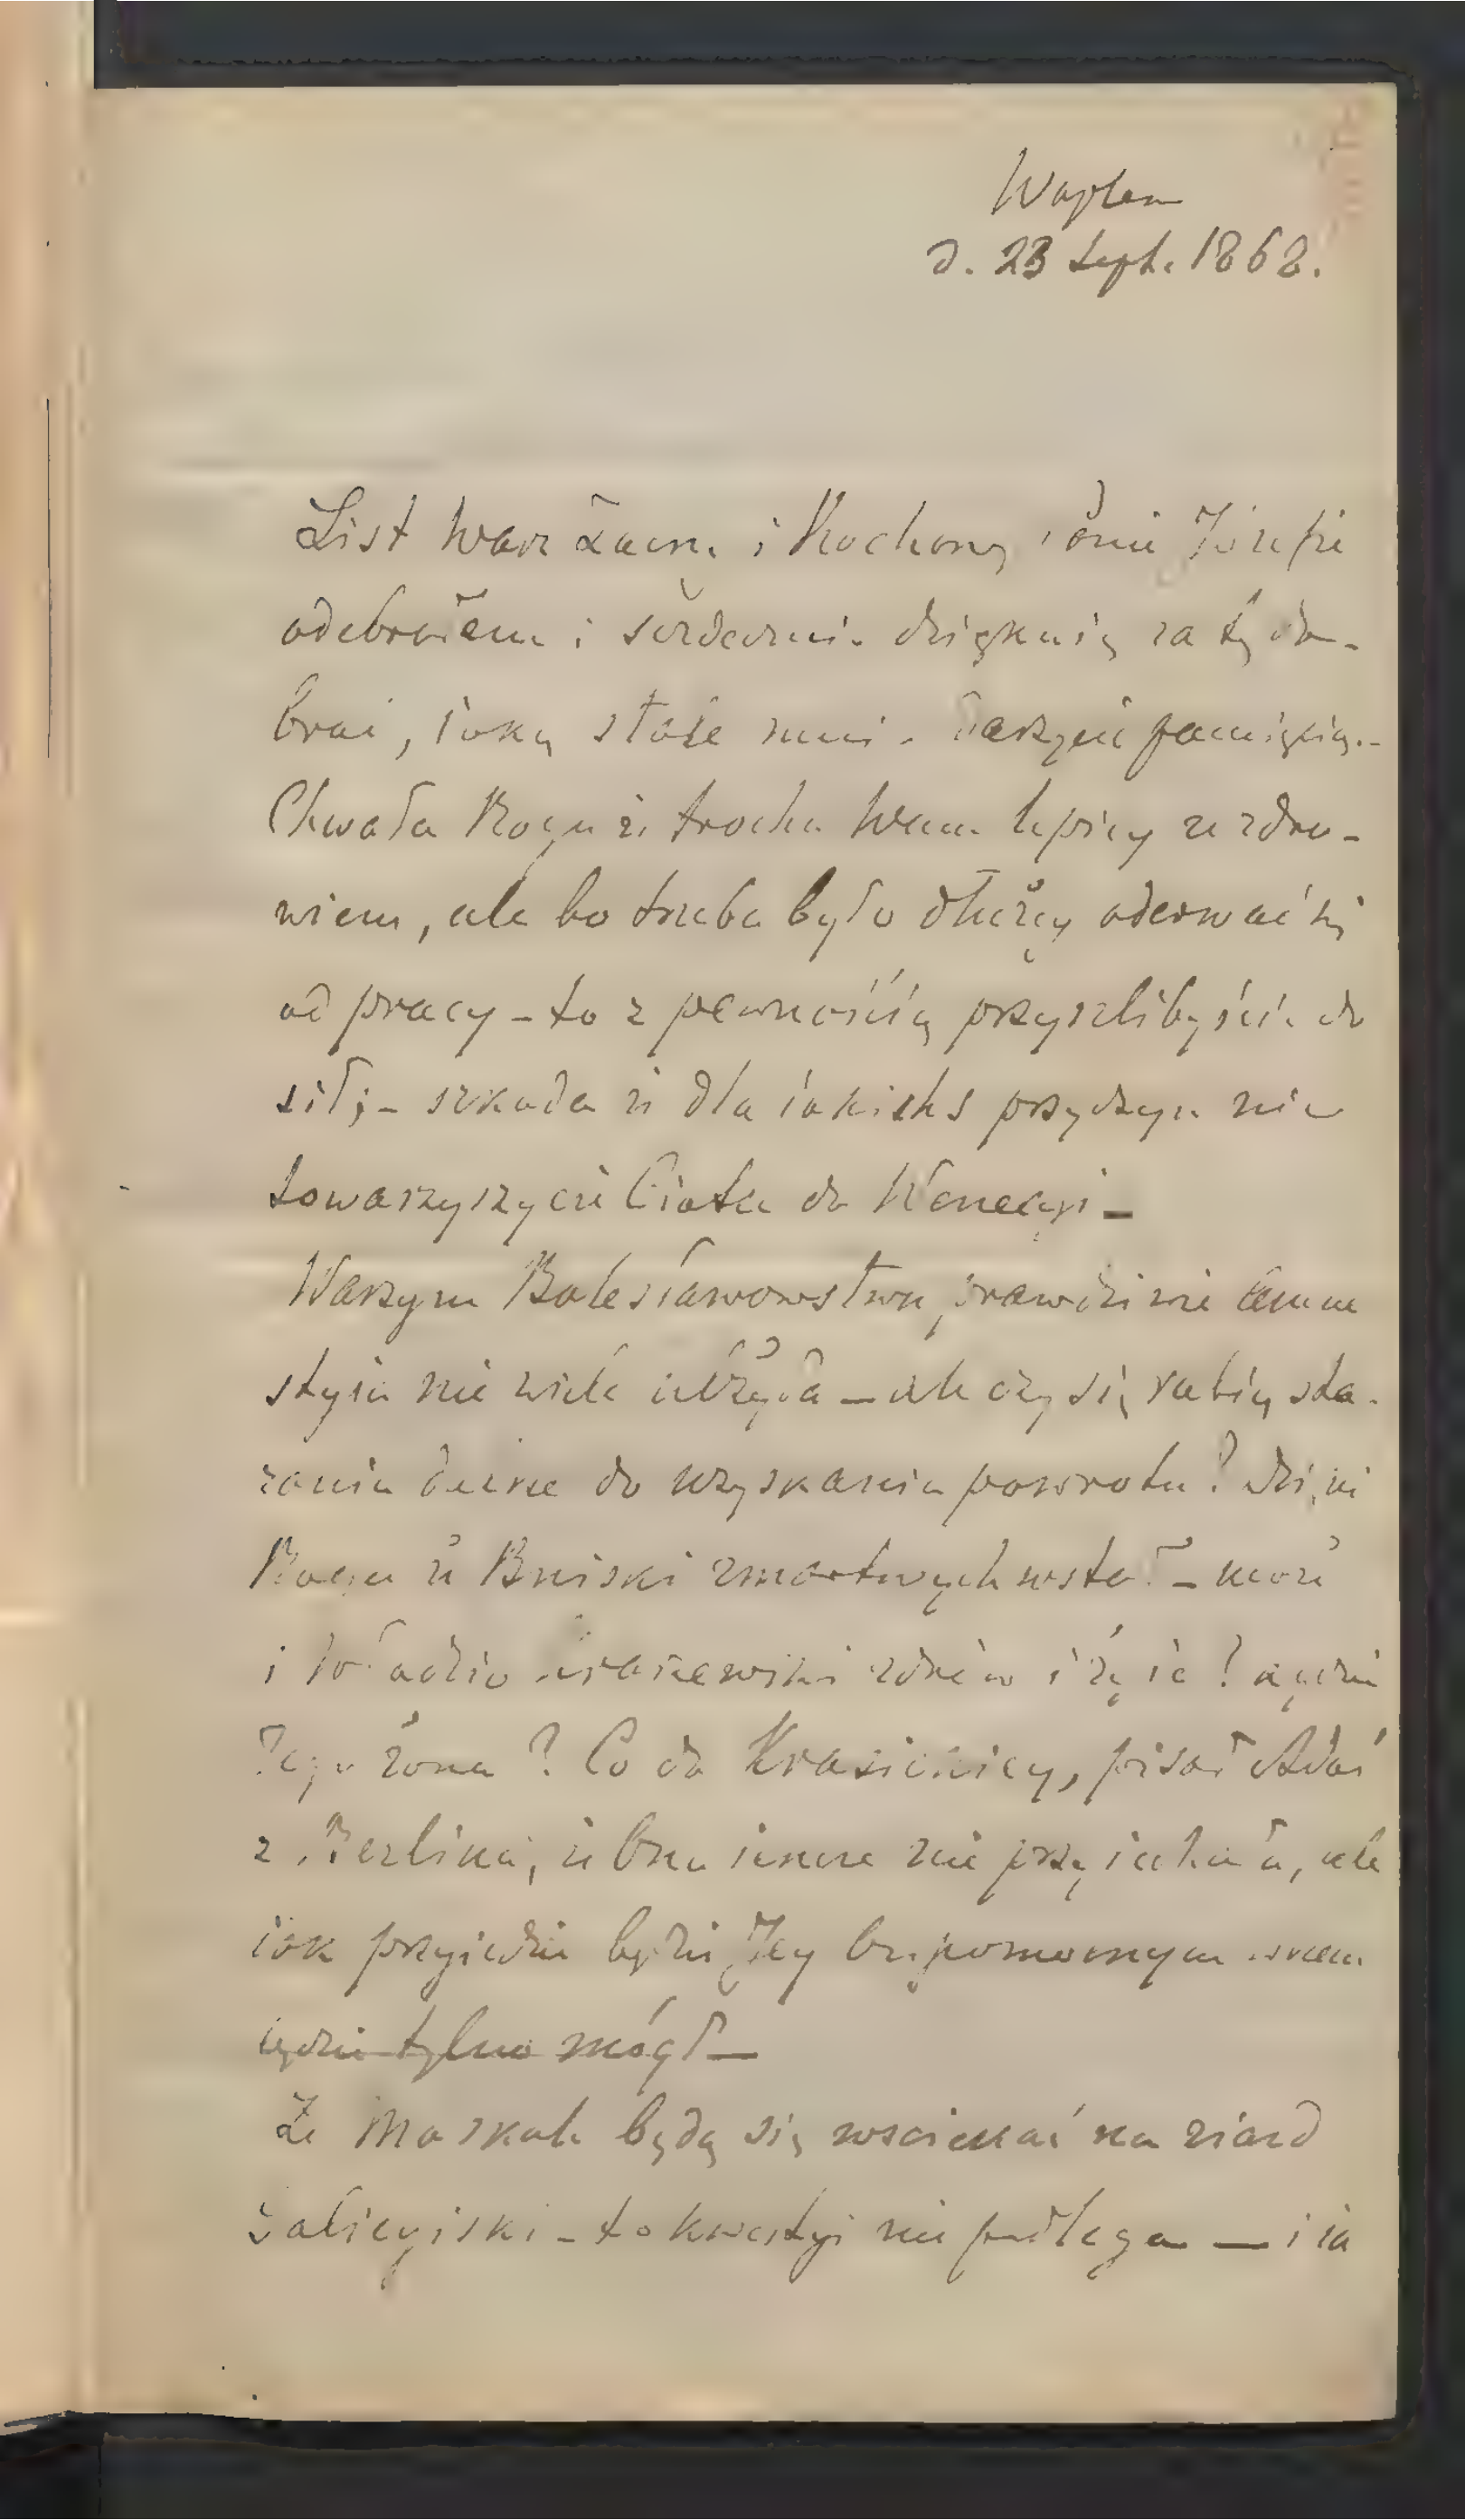 Waplewo
d. 23 Sept. 1868.
List Wasz Zacny i Kochany Panie Józefie
odebrałem i serdecznie dziękuię za tę do-
broć, iaką stale mnie darzycie pamięcią.-
Chwała Bogu że trochę Wam lepiey ze zdro-
wiem, ale bo trzeba było dłużey oderwać się
od pracy - to z pewnością przyszlibyście do
siły - szkoda że dla iakichs przyczyn nie
towarzyszycie do Wenecyi -
Waszym Bolesławowstwu prawdziwie amne
styia nie wiele ulżyła - ale czy się robią sta-
rania dalsze do uzyskania powrotu? Dzięki
Bogu że Bniski zmartwychwstał - może
i zdrów i żyie! a gdzie
Jego żona? Co do pisał Adaś
z Berlina, że Ona iescze nie przyiechała, ale
iak przyiedzie będzie Jey on pomocnym
będzie tylko mógł -
Że Moskale będą się wsciekać na ziazd
Galicyiski - to kwestyi nie podlega — i ia